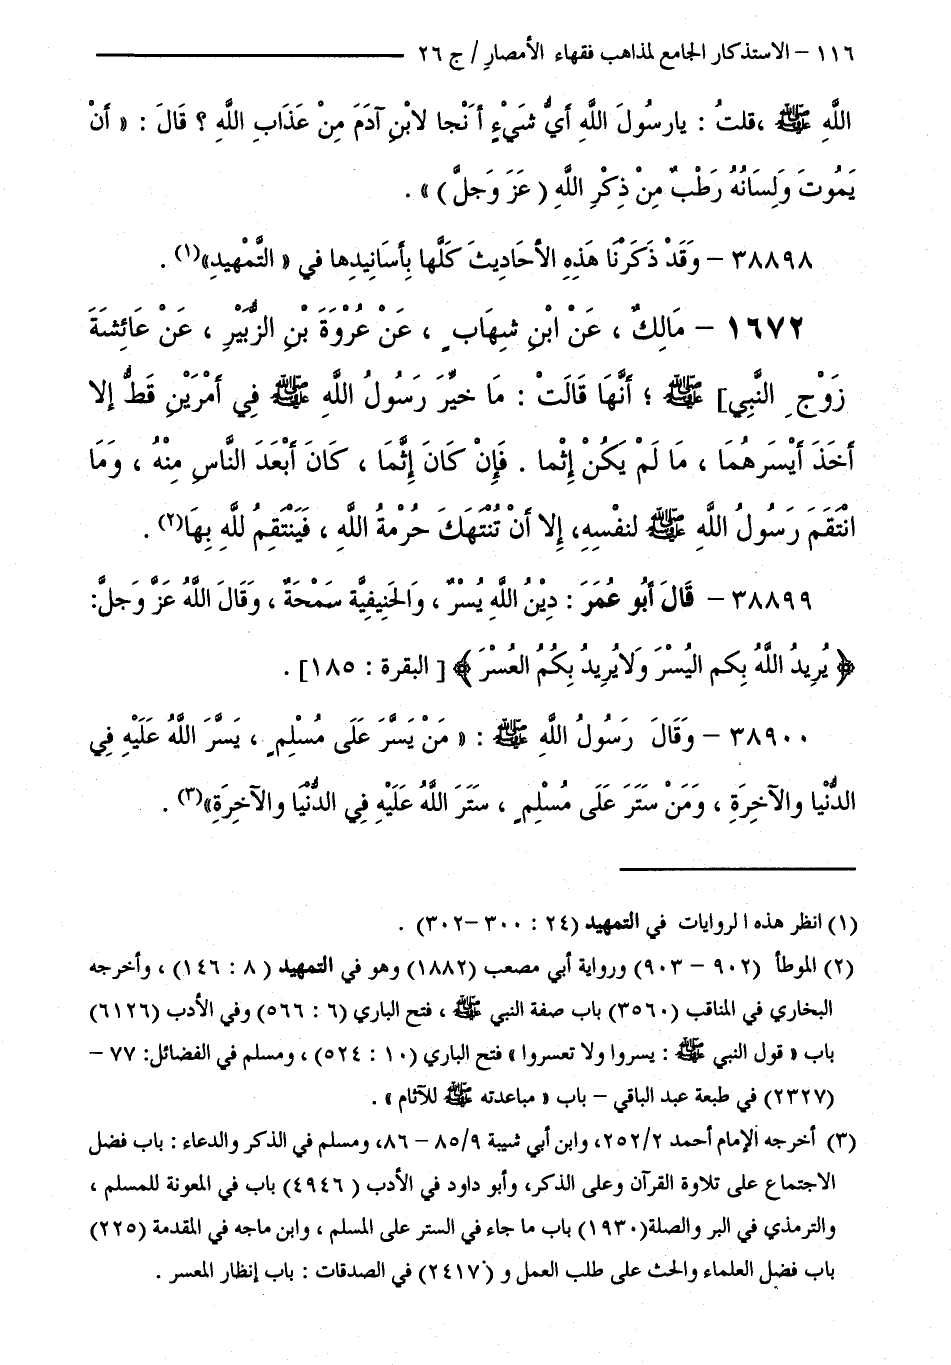 ١١٦ – الاستذكار الجامع لمذاهب فقهاء الأمصارِ / ج ٢٦
اللَّهِ ﷺ ،قلتُ : يارسُولَ اللَّهِ أيُّ شَيْءٍ أنْجا لابْنِ آدَمَ مِنْ عَذَابِ اللَّهِ ؟ قَالَ : « أنْ
يَمُوتَ وَلِسَانُهُ رَطْبٌ مِنْ ذِكْرِ اللَّهِ ( عَزَ وَجلَّ ) » .
٣٨٨٩٨ – وَقَدْ ذَكَرْنَا هَذِهِ الأحَادِيثَ كَلَّها بِأسَانِيدِها في « التَّمْهِيدِ»(١) .
١٦٧٢ – مَالِكٌ ، عَنْ ابْنِ شِهَابٍ ، عَنْ عُرْوَةَ بْنِ الزُّبَيْرِ ، عَنْ عَائِشَةَ
زَوْجِ النَّبِي] ﷺ ؛ أنَّهَا قَالَتْ : مَا خيِّرَ رَسُولُ اللَّهِ ﷺ فِي أمْرَيْنِ قَطُّ إلا
أخَذَ أيْسَرهُمَا ، مَا لَمْ يَكُنْ إثْما . فَإِنْ كَانَ إثَّمَا ، كَانَ أبْعَدَ النَّاسِ مِنْهُ ، وَمَا
انْتَقَمَ رَسُولُ اللَّهِ ﷺ لنفْسِهِ، إِلا أنْ تُنْتَهَكَ حُرْمةُ اللَّهِ ، فَيَنْتَقِمُ للَّهِ بِهَا(٢) .
٣٨٨٩٩ – قَالَ أبُو عُمَرَ : دِيْنُ اللَّهِ يُسْرٌ ، وَالحَنِيفِيَّة سَمْحَةٌ ، وَقَالَ اللَّهُ عَزَّ وَجلَّ:
﴿ يُرِيدُ اللَّهُ بِكم اليُسْرَ وَلايُرِيدُ بِكُمُ العُسْرَ ﴾ [ البقرة : ١٨٥] .
٣٨٩٠٠ – وَقَالَ رَسُولُ اللَّهِ ﷺ : « مَنْ يَسَّرَ عَلَى مُسْلِمٍ ، يَسَّرَ اللَّهُ عَلَيْهِ فِي
الدُّنْيا والآخِرَةِ ، وَمَنْ سَتَرَ عَلَى مُسْلِمٍ ، سَتَرَ اللَّهُ عَلَيْهِ فِي الدُّنْيَا والآخِرَةِ»(٣) .
(١) انظر هذه الروايات في التمهيد (٢٤ : ٣٠٠ –٣٠٢) .
(٢) الموطأ (٩٠٢ – ٩٠٣) ورواية أبي مصعب (١٨٨٢) وهو في التمهيد ( ٨ : ١٤٦) ، وأخرجه
البخاري في المناقب (٣٥٦٠) باب صفة النبي ﷺ ، فتح الباري (٦ : ٥٦٦) وفي الأدب (٦١٢٦)
باب « قول النبي ﷺ : يسروا ولا تعسروا » فتح الباري (١٠ : ٥٢٤) ، ومسلم في الفضائل: ٧٧ –
(٢٣٢٧) في طبعة عبد الباقي – باب « مباعدته ﷺ للآثام » .
(٣) أخرجه الإمام أحمد ٢٥٢/٢، وابن أبي شيبة ٨٥/٩ – ٨٦، ومسلم في الذكر والدعاء : باب فضل
الاجتماع على تلاوة القرآن وعلى الذكر، وأبو داود في الأدب ( ٤٩٤٦) باب في المعونة للمسلم ،
والترمذي في البر والصلة(١٩٣٠) باب ما جاء في الستر على المسلم ، وابن ماجه في المقدمة (٢٢٥)
باب فضل العلماء والحث على طلب العمل و (٢٤١٧) في الصدقات : باب إنظار المعسر .